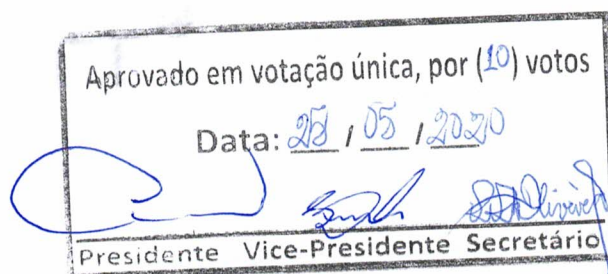 Aprovado em votação única, por (10) votos
Data: 25 / 05 / 2020
Presidente Vice-Presidente Secretário